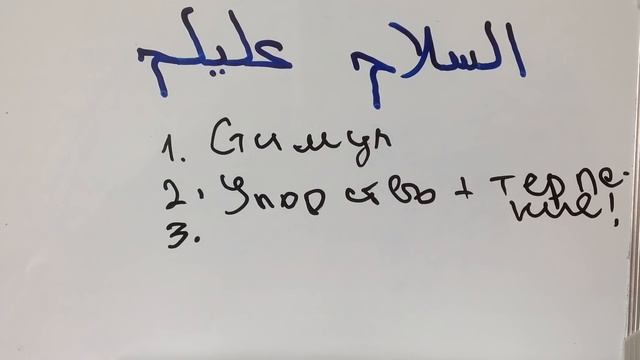 السلام عليكم
1. Стимул
2. Упорство + терпе-
ние!
3.